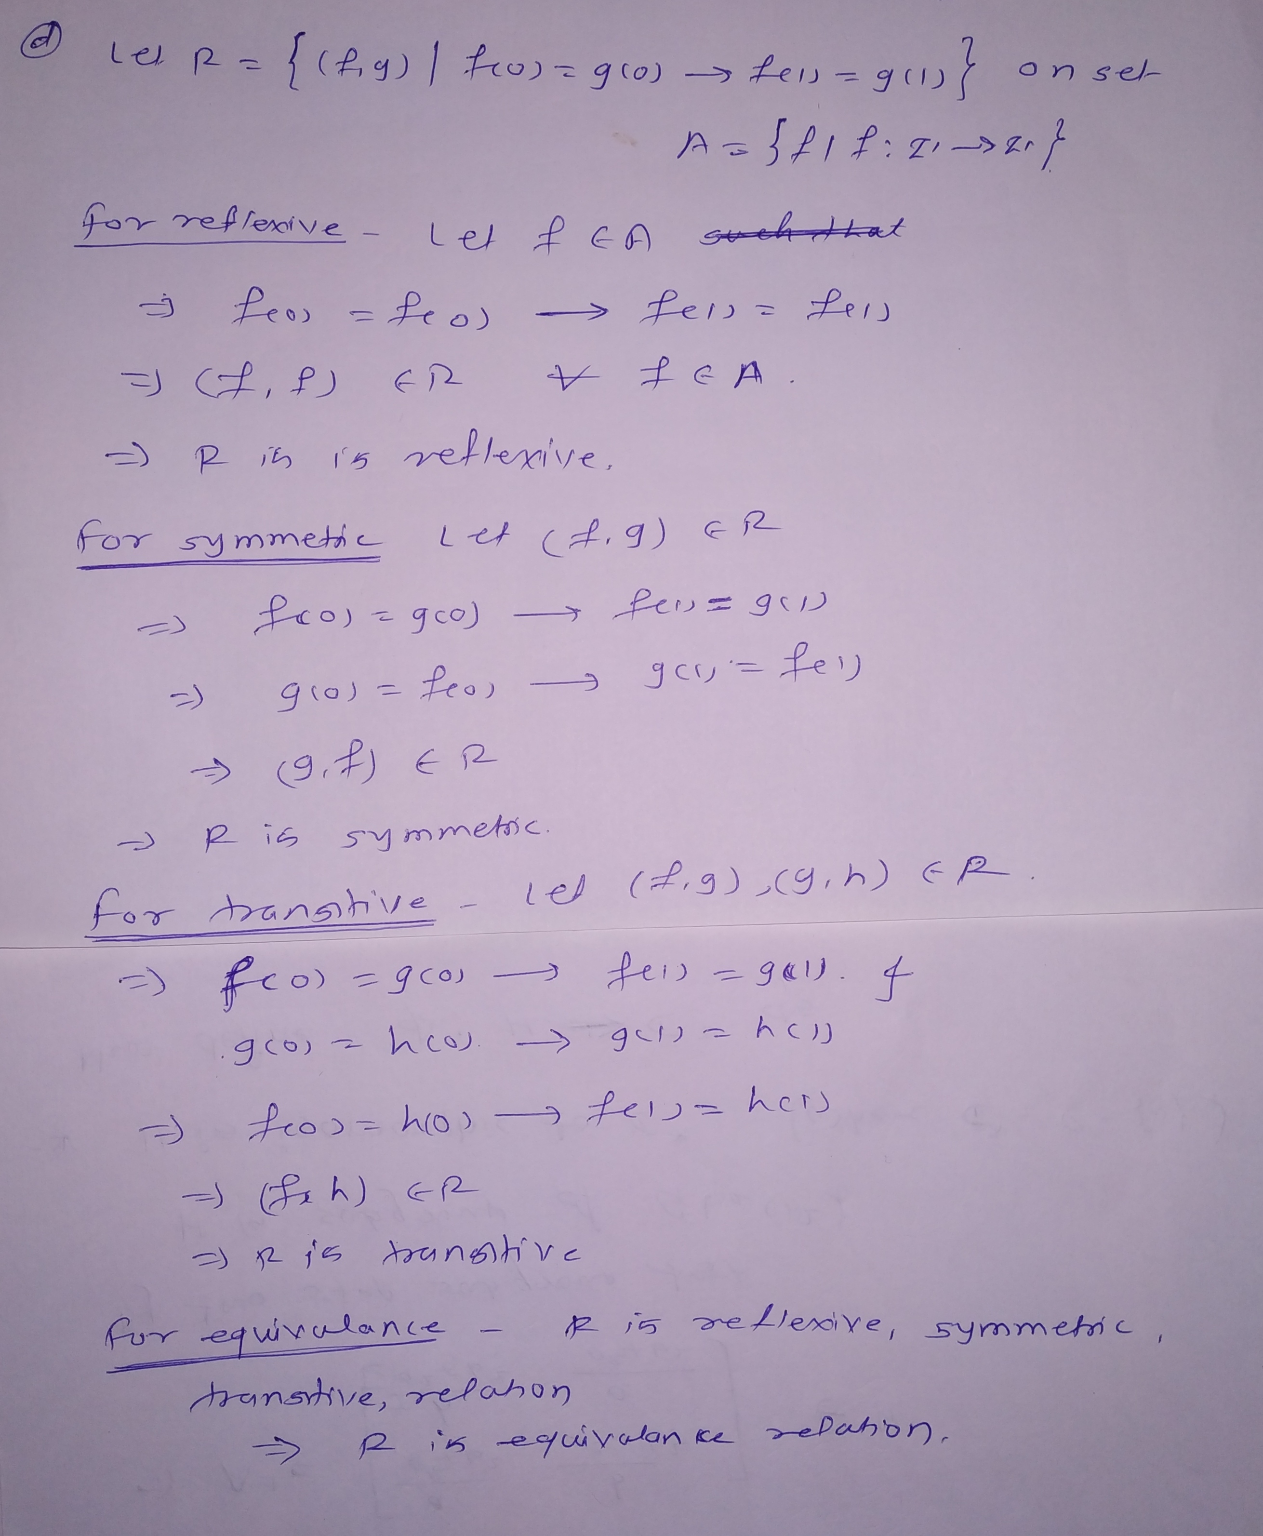 (d) Let R = { (f,g) | f(0) = g(0) → f(1) = g(1) } on set
A = { f | f : Z → Z }
for reflexive - Let f ∈ A such that
⇒ f(0) = f(0) → f(1) = f(1)
⇒ (f, f) ∈ R ∀ f ∈ A .
⇒ R is is reflexive.
for symmetric Let (f, g) ∈ R
⇒ f(0) = g(0) → f(1) = g(1)
⇒ g(0) = f(0) → g(1) = f(1)
⇒ (g, f) ∈ R
⇒ R is symmetric.
for transitive - let (f, g), (g, h) ∈ R .
⇒ f(0) = g(0) → f(1) = g(1). &
g(0) = h(0). → g(1) = h(1)
⇒ f(0) = h(0) → f(1) = h(1)
⇒ (f, h) ∈ R
⇒ R is transitive
for equivalance - R is reflexive, symmetric,
transitive, relation
⇒ R is equivalance relation.